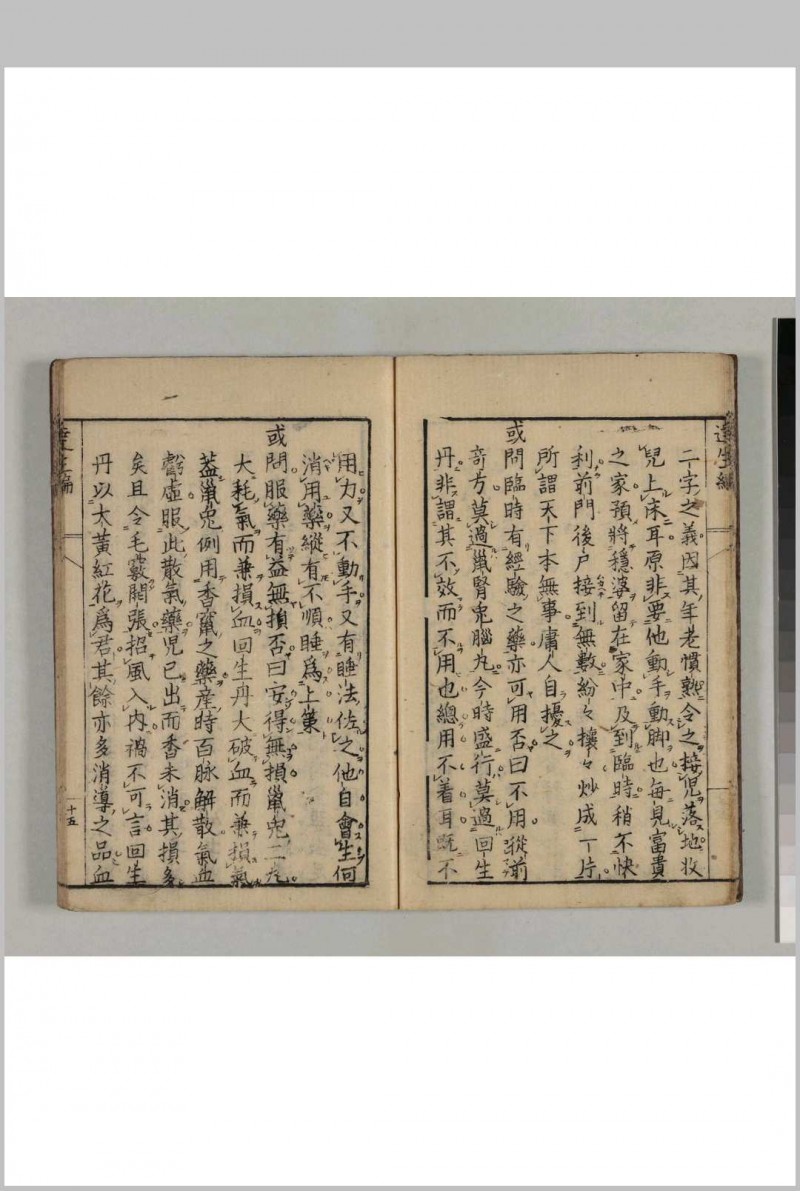 達生編
二字之義因其年老慣熟令之接児落地收
兒上床耳原非要他動手動脚也每見富貴
之家預將穩婆留在家中及到臨時稍不快
利前門後户接到無數紛々攘々炒成一片
所謂天下本無事庸人自擾之
或問臨時有經驗之藥亦可用否曰不用從前
奇方莫過鼠腎兔腦丸今時盛行莫過回生
丹非謂其不效而不用也總用不着耳既不
用力又不動手又有睡法佐之他自會生何
消用藥縱有不順睡爲上策
或問服藥有益無損否曰安得無損鼠兔二丸
大耗氣而兼損血回生丹大破血而兼損氣
盖鼠兔例用香竄之藥産時百脉解散氣血
虧虚服此散氣藥児已出而香未消其損多
矣且令毛竅開張招風入内禍不可言回生
丹以大黄紅花爲君其餘亦多消導之品血
十五